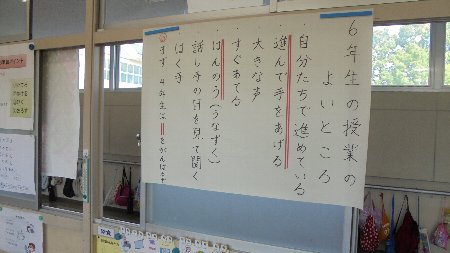 6年生の授業の
よいところ
・自分たちで進めている
進んで手をあげる
大きな声
すぐあてる
はんのう(うなずく)
話し手の目を見て聞く
はく手
まず、4年生は
をがんばるぞ